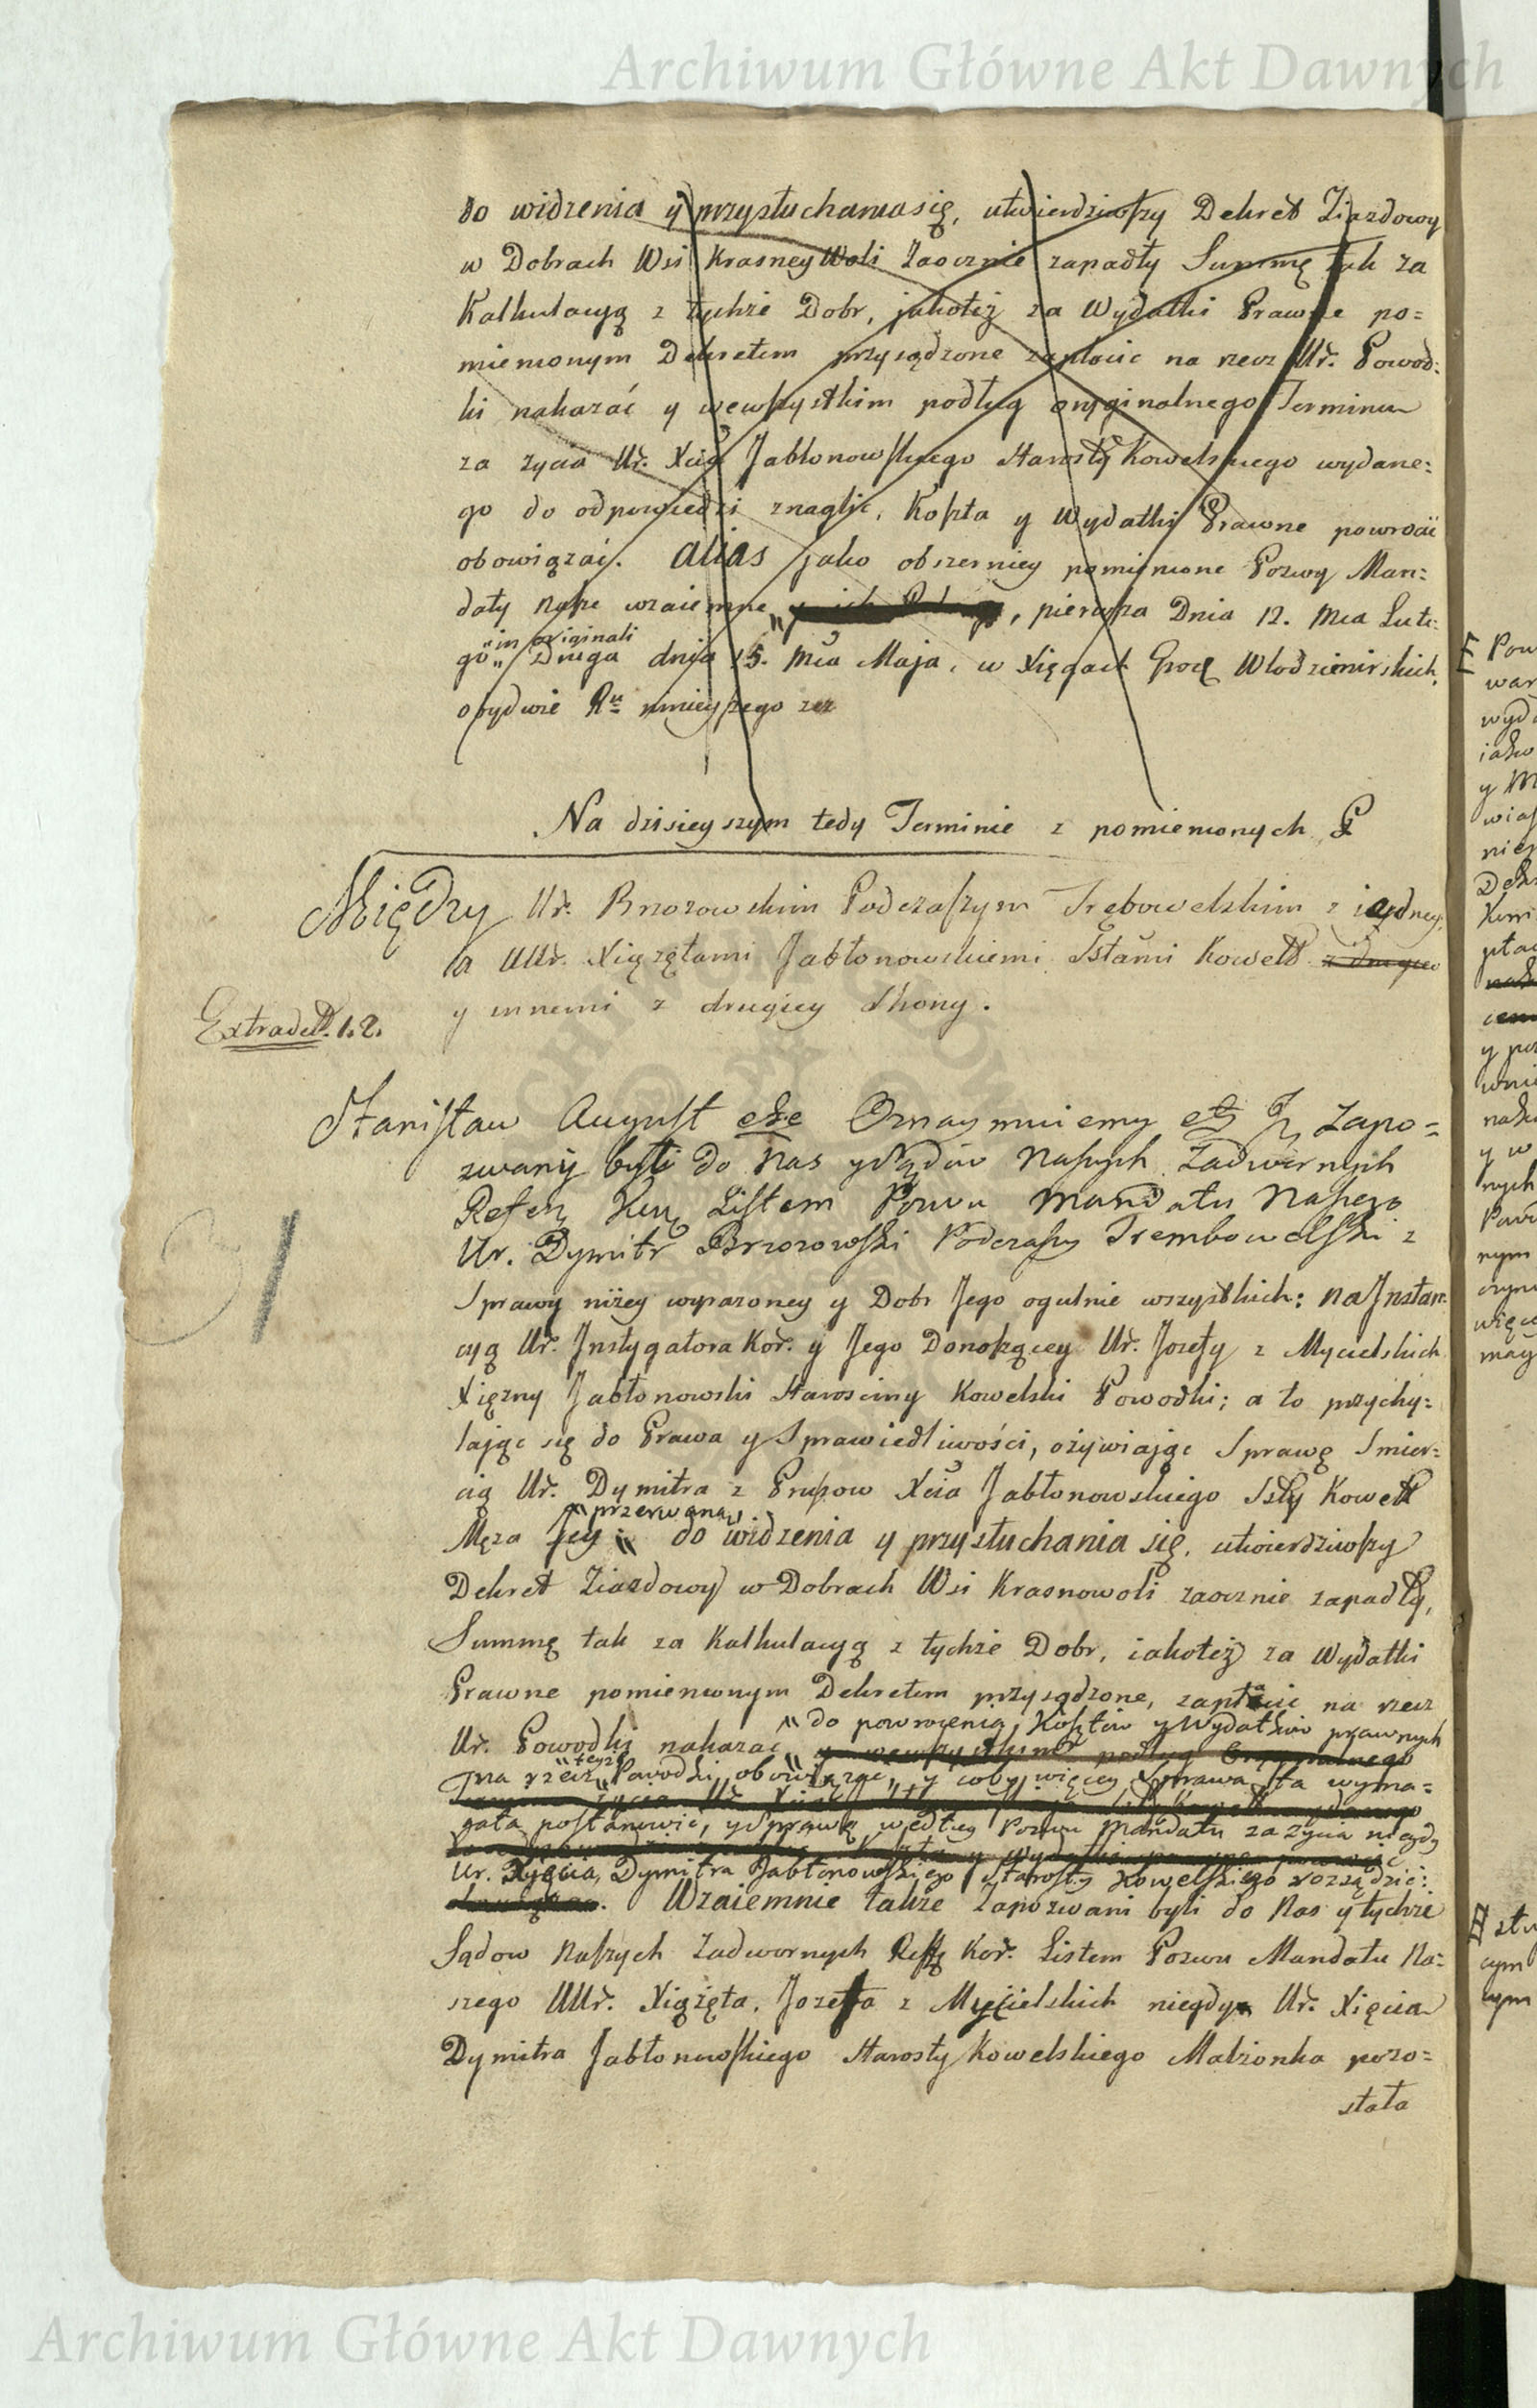 Archiwum Główne Akt Dawnych
do widzenia y przysłuchania się, utwierdziwszy Dekret Ziazdowy
w Dobrach Wsi Krasney Woli Zaocznie zapadły Summę tak za
Kalkulacyą z tychże Dobr, jakoteż za Wydatki Prawne po=
mienionym Dekretem przysądzone zapłacic na rzecz Ur. Powod=
ki nakazać y wewszystkim podług oryginalnego Terminu
za życia Ur. Xcia Jabłonowskiego Starosty Kowelskiego wydane=
go do odpowiedzi znaglic, Koszta y Wydatki Prawne powrocić
obowiązać. alias jako obszerniey pomienione Pozwy Man=
daty Nasze wzaiemne, pierwsza Dnia 12. Mca Lute=
"in originali
go „ Druga dnia 15. Mca Maja, w Xięgach Grod Włodzimirskich,
obydwie Ru ninieyszego zez
Na dzisieyszym tedy Terminie z pomienionych P
Między Ur. Brzozowskim Podczaszym Trębowelskim z iedney,
a UUr. Xiążętami Jabłonowskiemi Sstami Kowelt z drugiey
y innemi z drugiey strony.
Extradett. 1. 2.
Stanisław August etc Oznaymuiemy etc Iz Zapo=
zwany był do Nas y Sądów Naszych Zadwornych
Refer Kor Listem Pozwu Mandatu Naszego
Ur. Dymitr Brzozowski Podczaszy Trembowelski z
Sprawy niżey wyrażoney y Dobr Jego ogulnie wszystkich: na Instan=
cyą Ur. Instygatora Kor. y Jego Donoszącey Ur. Jozefy z Mycielskich
Xiężny Jabłonowski Starosciny Kowelski Powodki; a to przychy=
lając się do Prawa y Sprawiedliwości, ożywiając Sprawę Smier=
cią Ur. Dymitra z Prusow Xcia Jabłonowskiego Ssty Kowelt
"przerwaną"
Męża Jey „ do widzenia y przysłuchania się, utwierdziwszy
Dekret Ziazdowy w Dobrach Wsi Krasnowoli zaocznie zapadły,
Summę tak za Kalkulacyą z tychże Dobr, iakoteż za Wydatki
Prawne pomienionym Dekretem przysądzone, zapłacic na rzecz
" do powrocenia Kosztów y Wydatków prawnych
Ur. Powodki nakazac „ y wewszystkim podług Oryginalnego
na rzecz teyże Powodki obowiązac, y coby więcey Sprawa ta wyma=
gała postanowic, y Sprawę według Pozwu Mandatu za życia niegdy
Ur. Xięcia Dymitra Jabłonowskiego Starosty Kowelskiego rozsądzić:
Wzaiemnie także Zapozwani byli do Nas y tychże
Sądow Naszych Zadwornych Reff Kor. Listem Pozwu Mandatu Na=
szego UUr. Xiążęta, Jozefa z Mycielskich niegdy Ur. Xięcia
Dymitra Jabłonowskiego Starosty Kowelskiego Małżonka pozo=
stała
Archiwum Główne Akt Dawnych